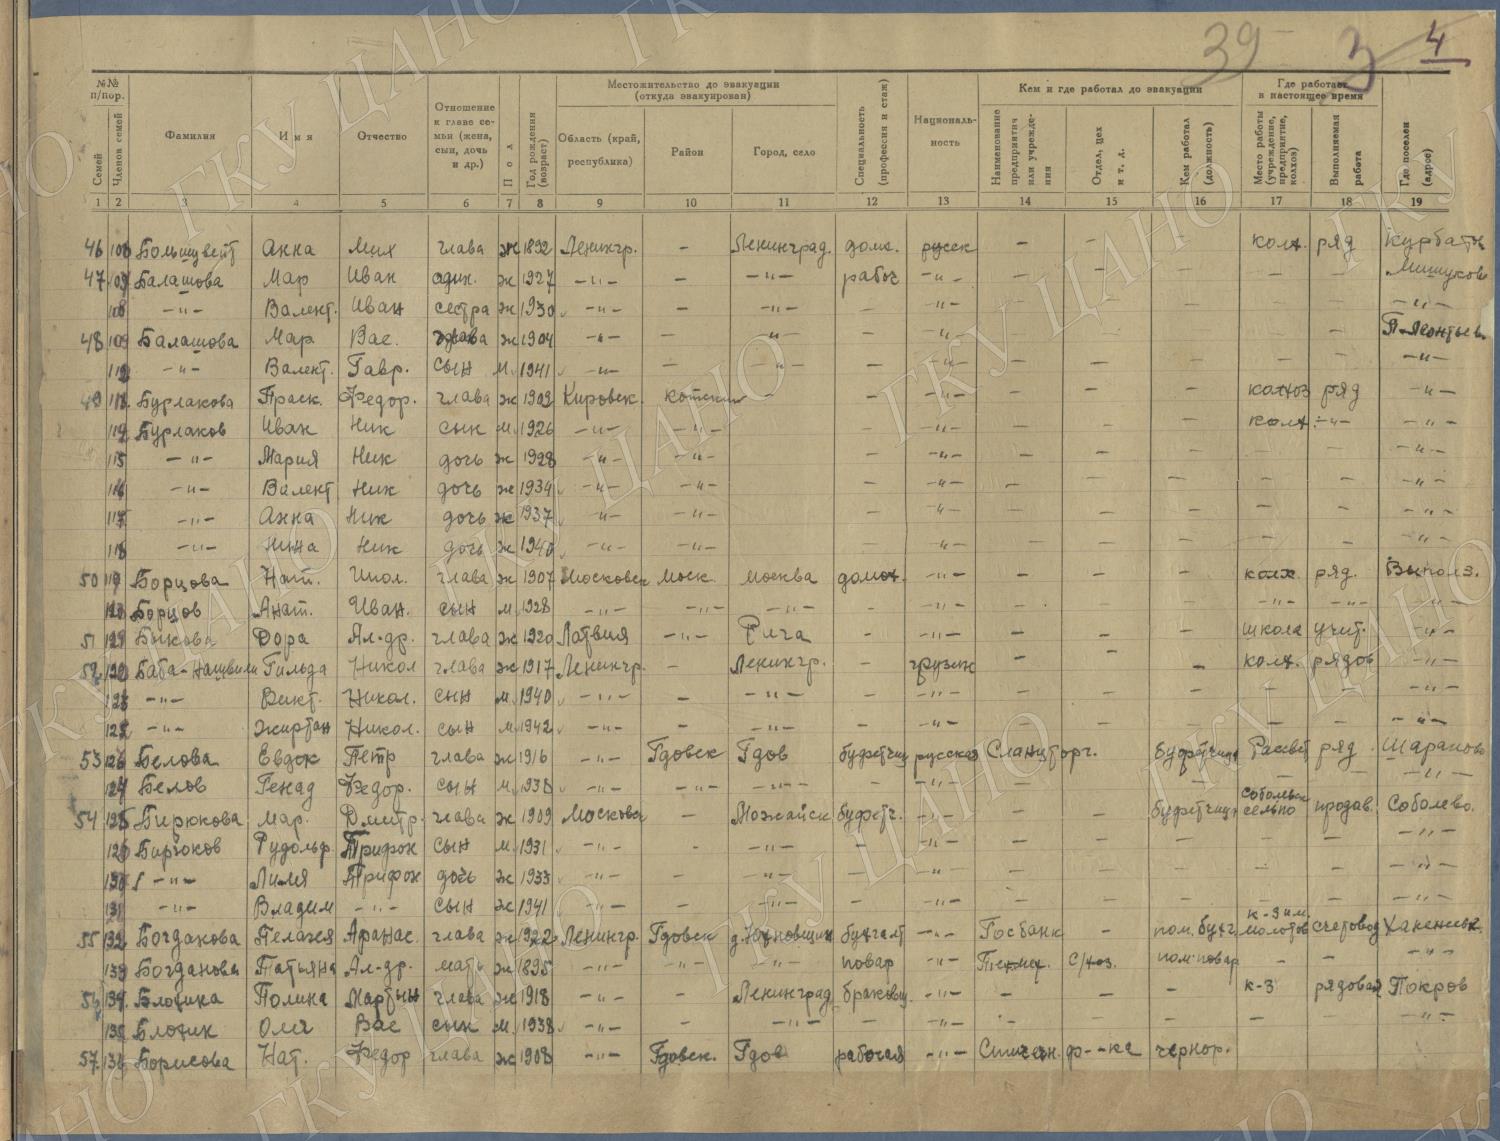 39 3 4
№№ п/пор.
Семей
Членов семей
Фамилия
Имя
Отчество
Отношение к главе семьи (жена, сын, дочь и др.)
Пол
Год рождения (возраст)
Местожительство до эвакуации (откуда эвакуирован)
Область (край, республика)
Район
Город, село
Специальность (профессия и стаж)
Националь-ность
Кем и где работал до эвакуации
Наименование предприятия или учреждения
Отдел, цех и т. д.
Кем работал (должность)
Где работает в настоящее время
Место работы (учреждение, предприятие, колхоз)
Выполняемая работа
Где поселен (адрес)
1 2 3 4 5 6 7 8 9 10 11 12 13 14 15 16 17 18 19
46 Анна Мих глава ж 1892 Ленингр. - Ленинград. дома. русск - - - колх. ряд
47 Балашова Мар Иван один. ж 1927 -"- - -"- рабоч -"- - - - - -
108 -"- Валент. Иван сестра ж 1930 -"- - -"- - -"- - - - - - -"-
48 109 Балашова Мар Вас. глава ж 1904 -"- - -"- - -"- - - - - - П-Леонтьев.
-"- Валент. Гавр. сын м. 1941 -"- - -"- - -"- - - - - - -"-
49 Бурлакова Праск. Федор. глава ж 1902 Кировск. - - -"- - - - колхоз ряд -"-
Бурлаков Иван Ник сын м. 1926 -"- -"- - -"- - - - колх. -"- -"-
115 -"- Мария Ник дочь ж 1928 -"- -"- - -"- - - - - - -"-
116 -"- Валент Ник дочь ж 1934 -"- -"- - -"- - - - - - -"-
117 -"- Анна Ник дочь ж 1937 -"- -"- - -"- - - - - - -"-
118 -"- Нина Ник дочь ж 1940 -"- -"- - -"- - - - - - -"-
50 Борцова Нат. глава ж 1907 Московск Моск. Москва домох. -"- - - - колх. ряд. Выполз.
Борцов Анат. Иван. сын м. 1928 -"- -"- -"- - -"- - - - -"- -"- -"-
51 Быкова Дора Ал-др. глава ж 1920 Латвия -"- Рига - -"- - - - школа учит. -"-
52 Гильда Никол глава ж 1917 Ленингр. - Ленингр. - грузин - - - колх. рядов -"-
-"- Викт. Никол. сын м. 1940 -"- - -"- - -"- - - - - - -"-
-"- Никол. сын м. 1942 -"- - -"- - -"- - - - - - -"-
53 126 Белова Евдок Петр глава ж 1916 -"- Гдовск Гдов буфетчиц русская Сланцторг. буфетчица Рассвет ряд. Шарапово
127 Белов Генад Федор. сын м. 1938 -"- -"- -"- - -"- - - - - -"-
54 128 Бирюкова Мар. Дмитр. глава ж 1909 Москова - Можайск буфетч. -"- - - буфетчица Собольск сельпо продав. Соболево.
Бирюков Рудольф Трифон сын м. 1931 -"- - -"- - -"- - - - - - -"-
130 -"- Лилия Трифон дочь ж 1933 -"- - -"- - -"- - - - - - -"-
131 -"- Владим -"- сын ж 1941 -"- - -"- - -"- - - - - - -"-
55 132 Богданова Пелагея Афанас. глава ж 1922 Ленингр. Гдовск бухгалт -"- Госбанк - пом. бухг. к-з им. Молотов счетовод
133 Богданова Татьяна Ал-др. мать ж 1895 -"- -"- -"- повар -"- с/хоз. пом. повар - - -"-
56 134 Блохина Полина Мартын глава ж 1918 -"- - Ленинград браковщ. -"- - - - к-з рядовая Покров
135 Блохин Вас сын м. 1938 -"- - -"- - -"- - - - - - -"-
57. 136 Борисова Нат. Федор глава ж 1908 -"- Гдовск. Гдов рабочая -"- ф-ка чернор.
ГКУ ЦАНО